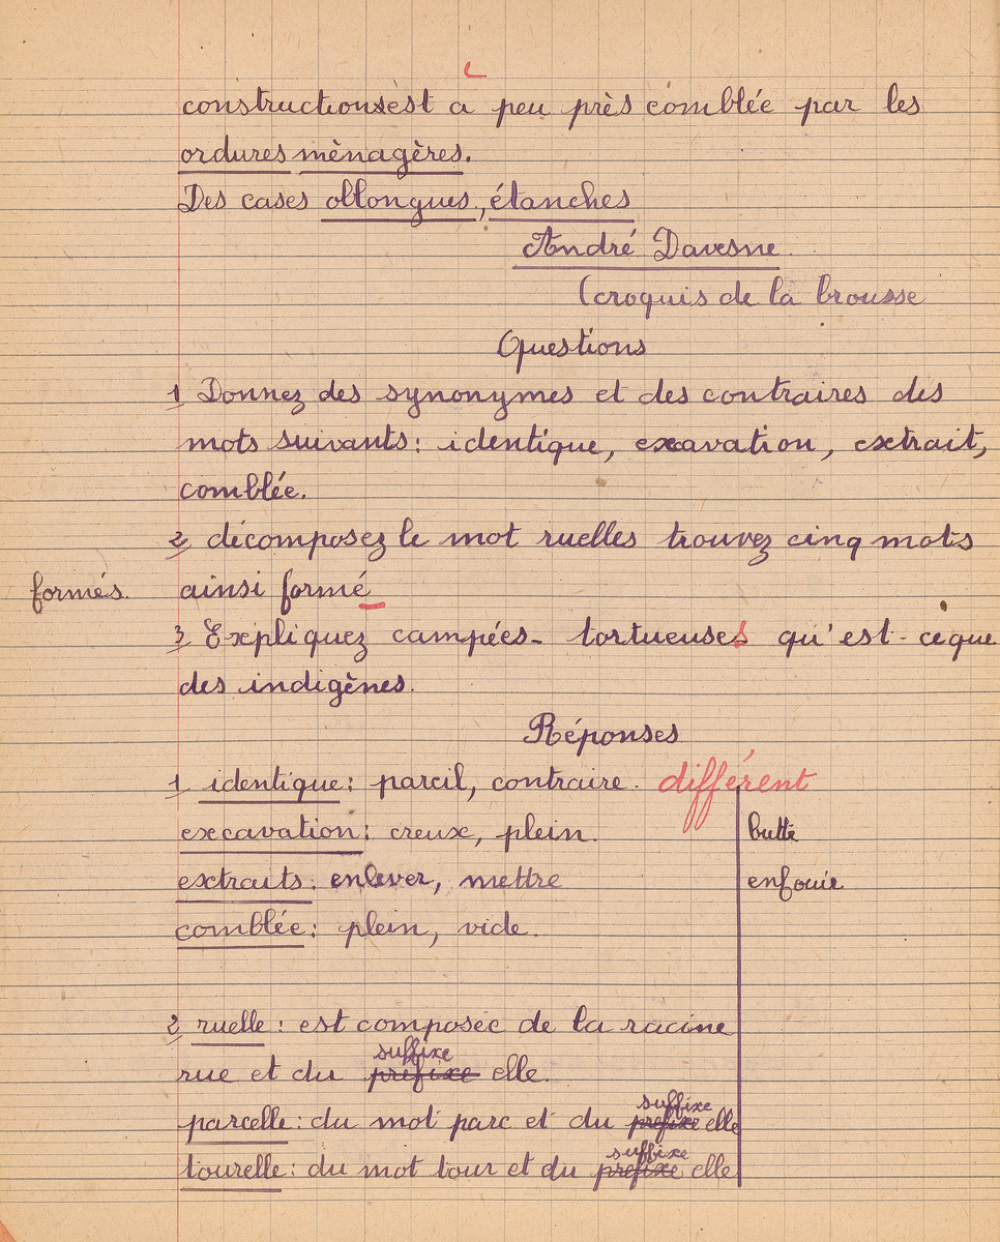 constructions est a peu près comblée par les
ordures mènagères.
Des cases oblongues, étanches
André Davesne.
(croquis de la brousse
Questions
1 Donnez des synonymes et des contraires des
mots suivants: identique, excavation, extrait,
comblée.
2 décomposez le mot ruelles trouvez cinq mots
formés. ainsi formé
3 Expliquez campées - tortueuses qu'est-ce que
des indigènes.
Réponses
1 identique: pareil, contraire. différent
excavation: creux, plein. butte
extraits: enlever, mettre enfouie
comblée: plein, vide.
2 ruelle: est composée de la racine
suffixe
rue et du préfixe elle.
suffixe
parcelle: du mot parc et du prefixe elle
suffixe
tourelle: du mot tour et du prefixe elle